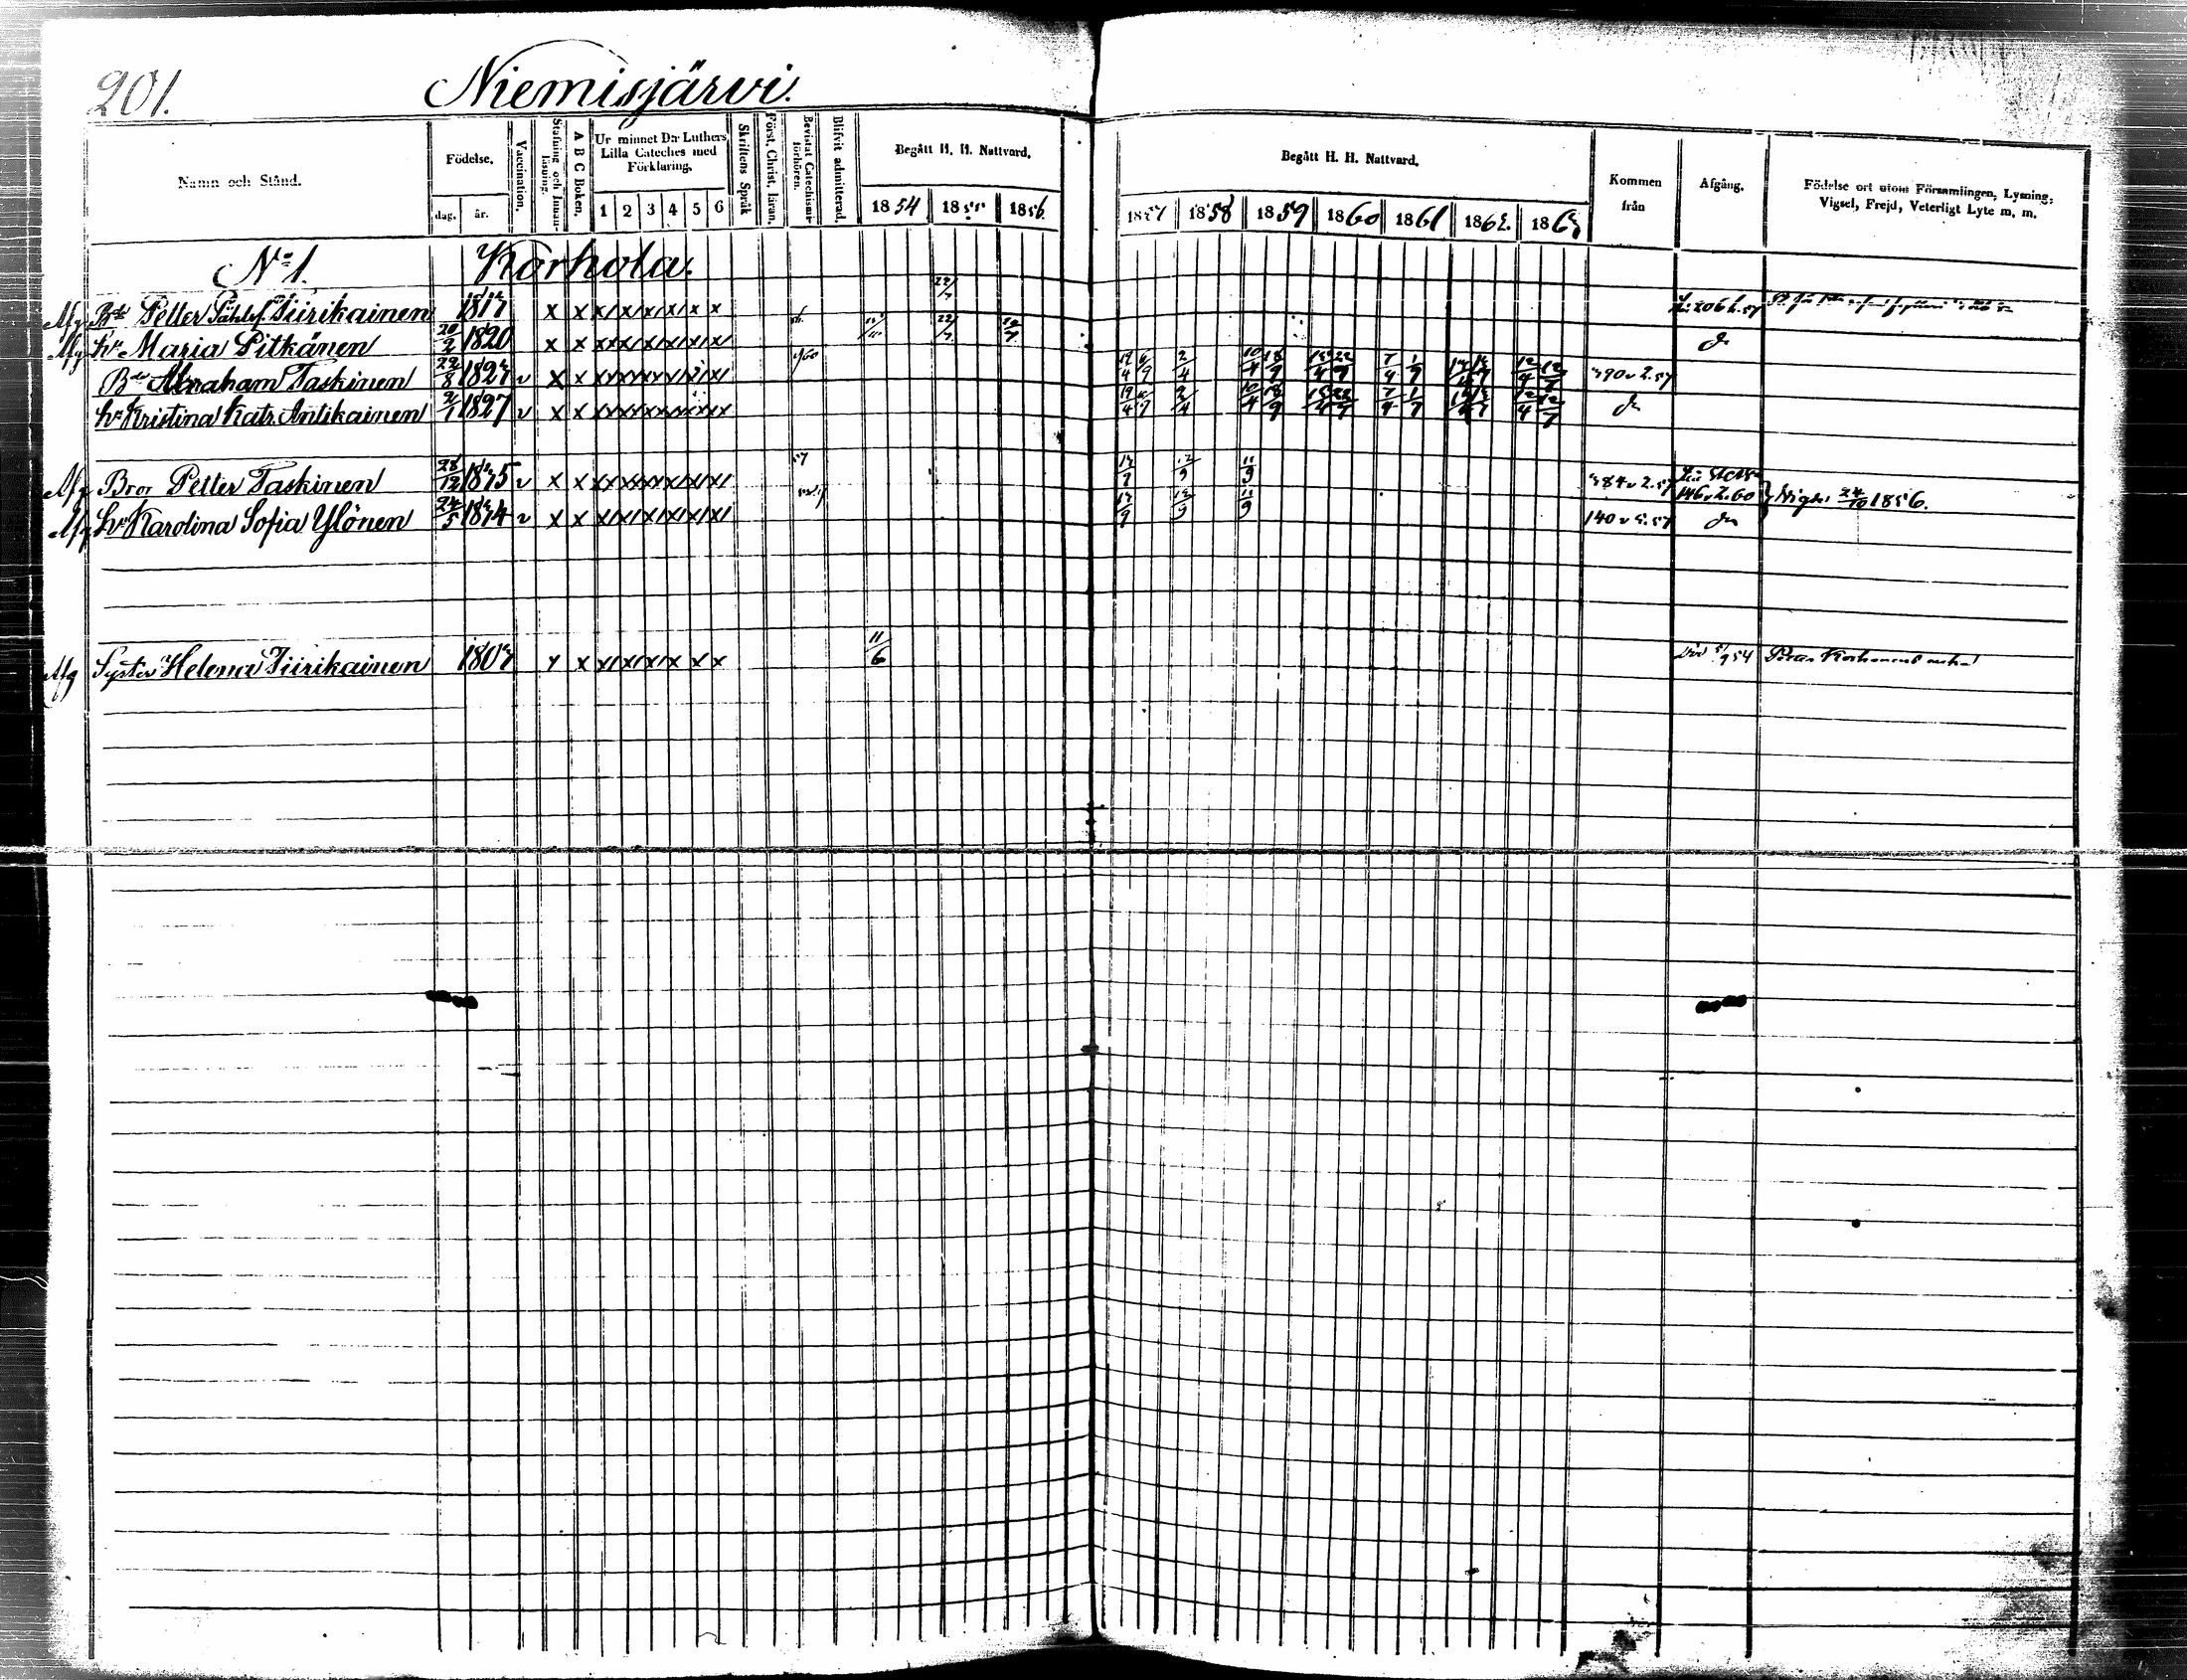 201.
Niemisjärvi.
Namn och Stånd.
Födelse.
dag. år.
Vaccination.
Stafning och Innanläsning.
A B C Boken.
Ur minnet D:r Luthers Lilla Cateches med Förklaring.
1 2 3 4 5 6
Skriftens Språk
Först. Christ. läran.
Bevistat Catechismi förhören.
Blifvit admitterad.
Begått H. H. Nattvard.
1854 1855 1856
Begått H. H. Nattvard.
1857 1858 1859 1860 1861 1862 1863
Kommen från
Afgång.
Födelse ort utom Församlingen, Lysning, Vigsel, Frejd, Veterligt Lyte m. m.
No 1. Korhola.
Afg Bde Petter Påhlsf. Tiirikainen 1817 x x x x x x x x 22/7
Afg hu Maria Pitkänen 20/2 1820 x x x x x x x x 22/7 do
Bde Abraham Taskinen 22/8 1823 v x x x x x x x x 2/4 390 v 2.57
hu Kristina Katr. Antikainen 2/1 1827 v x x x x x x x x 2/4 do
Afg Bror Petter Taskinen 28/12 1835 v x x x x x x x x 57 12/9 11/9 384 v 2.57 146 v 2.60 Vigde 24/10 1856.
Afg hu Karolina Sofia Ylönen 24/5 1834 v x x x x x x x x 12/9 11/9 140 v 5.57 do
Afg Syster Helena Tiirikainen 1803 x x x x x x x x 11/6 död 5/9 54